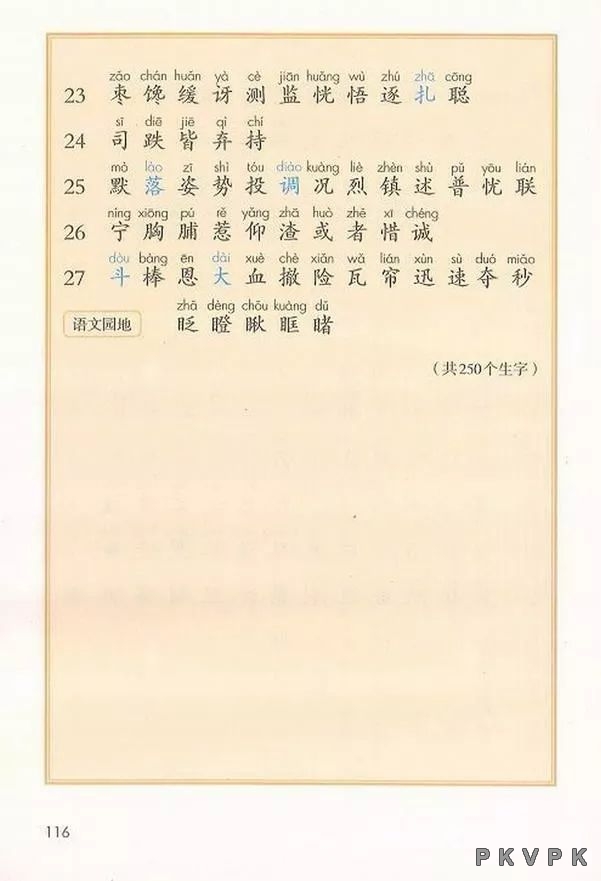 zǎo chán huǎn yà cè jiān huǎng wù zhú zhā cōng
23 枣 馋 缓 讶 测 监 恍 悟 逐 扎 聪
sī diē jiē qì chí
24 司 跌 皆 弃 持
mò lào zī shì tóu diào kuàng liè zhèn shù pǔ yōu lián
25 默 落 姿 势 投 调 况 烈 镇 述 普 忧 联
níng xiōng pú rě yǎng zhā huò zhě xī chéng
26 宁 胸 脯 惹 仰 渣 或 者 惜 诚
dòu bàng ēn dài xuè chè xiǎn wǎ lián xùn sù duó miǎo
27 斗 棒 恩 大 血 撤 险 瓦 帘 迅 速 夺 秒
zhǎ dèng chǒu kuàng dǔ
语文园地 眨 瞪 瞅 眶 睹
（共250个生字）
116
PKVPK